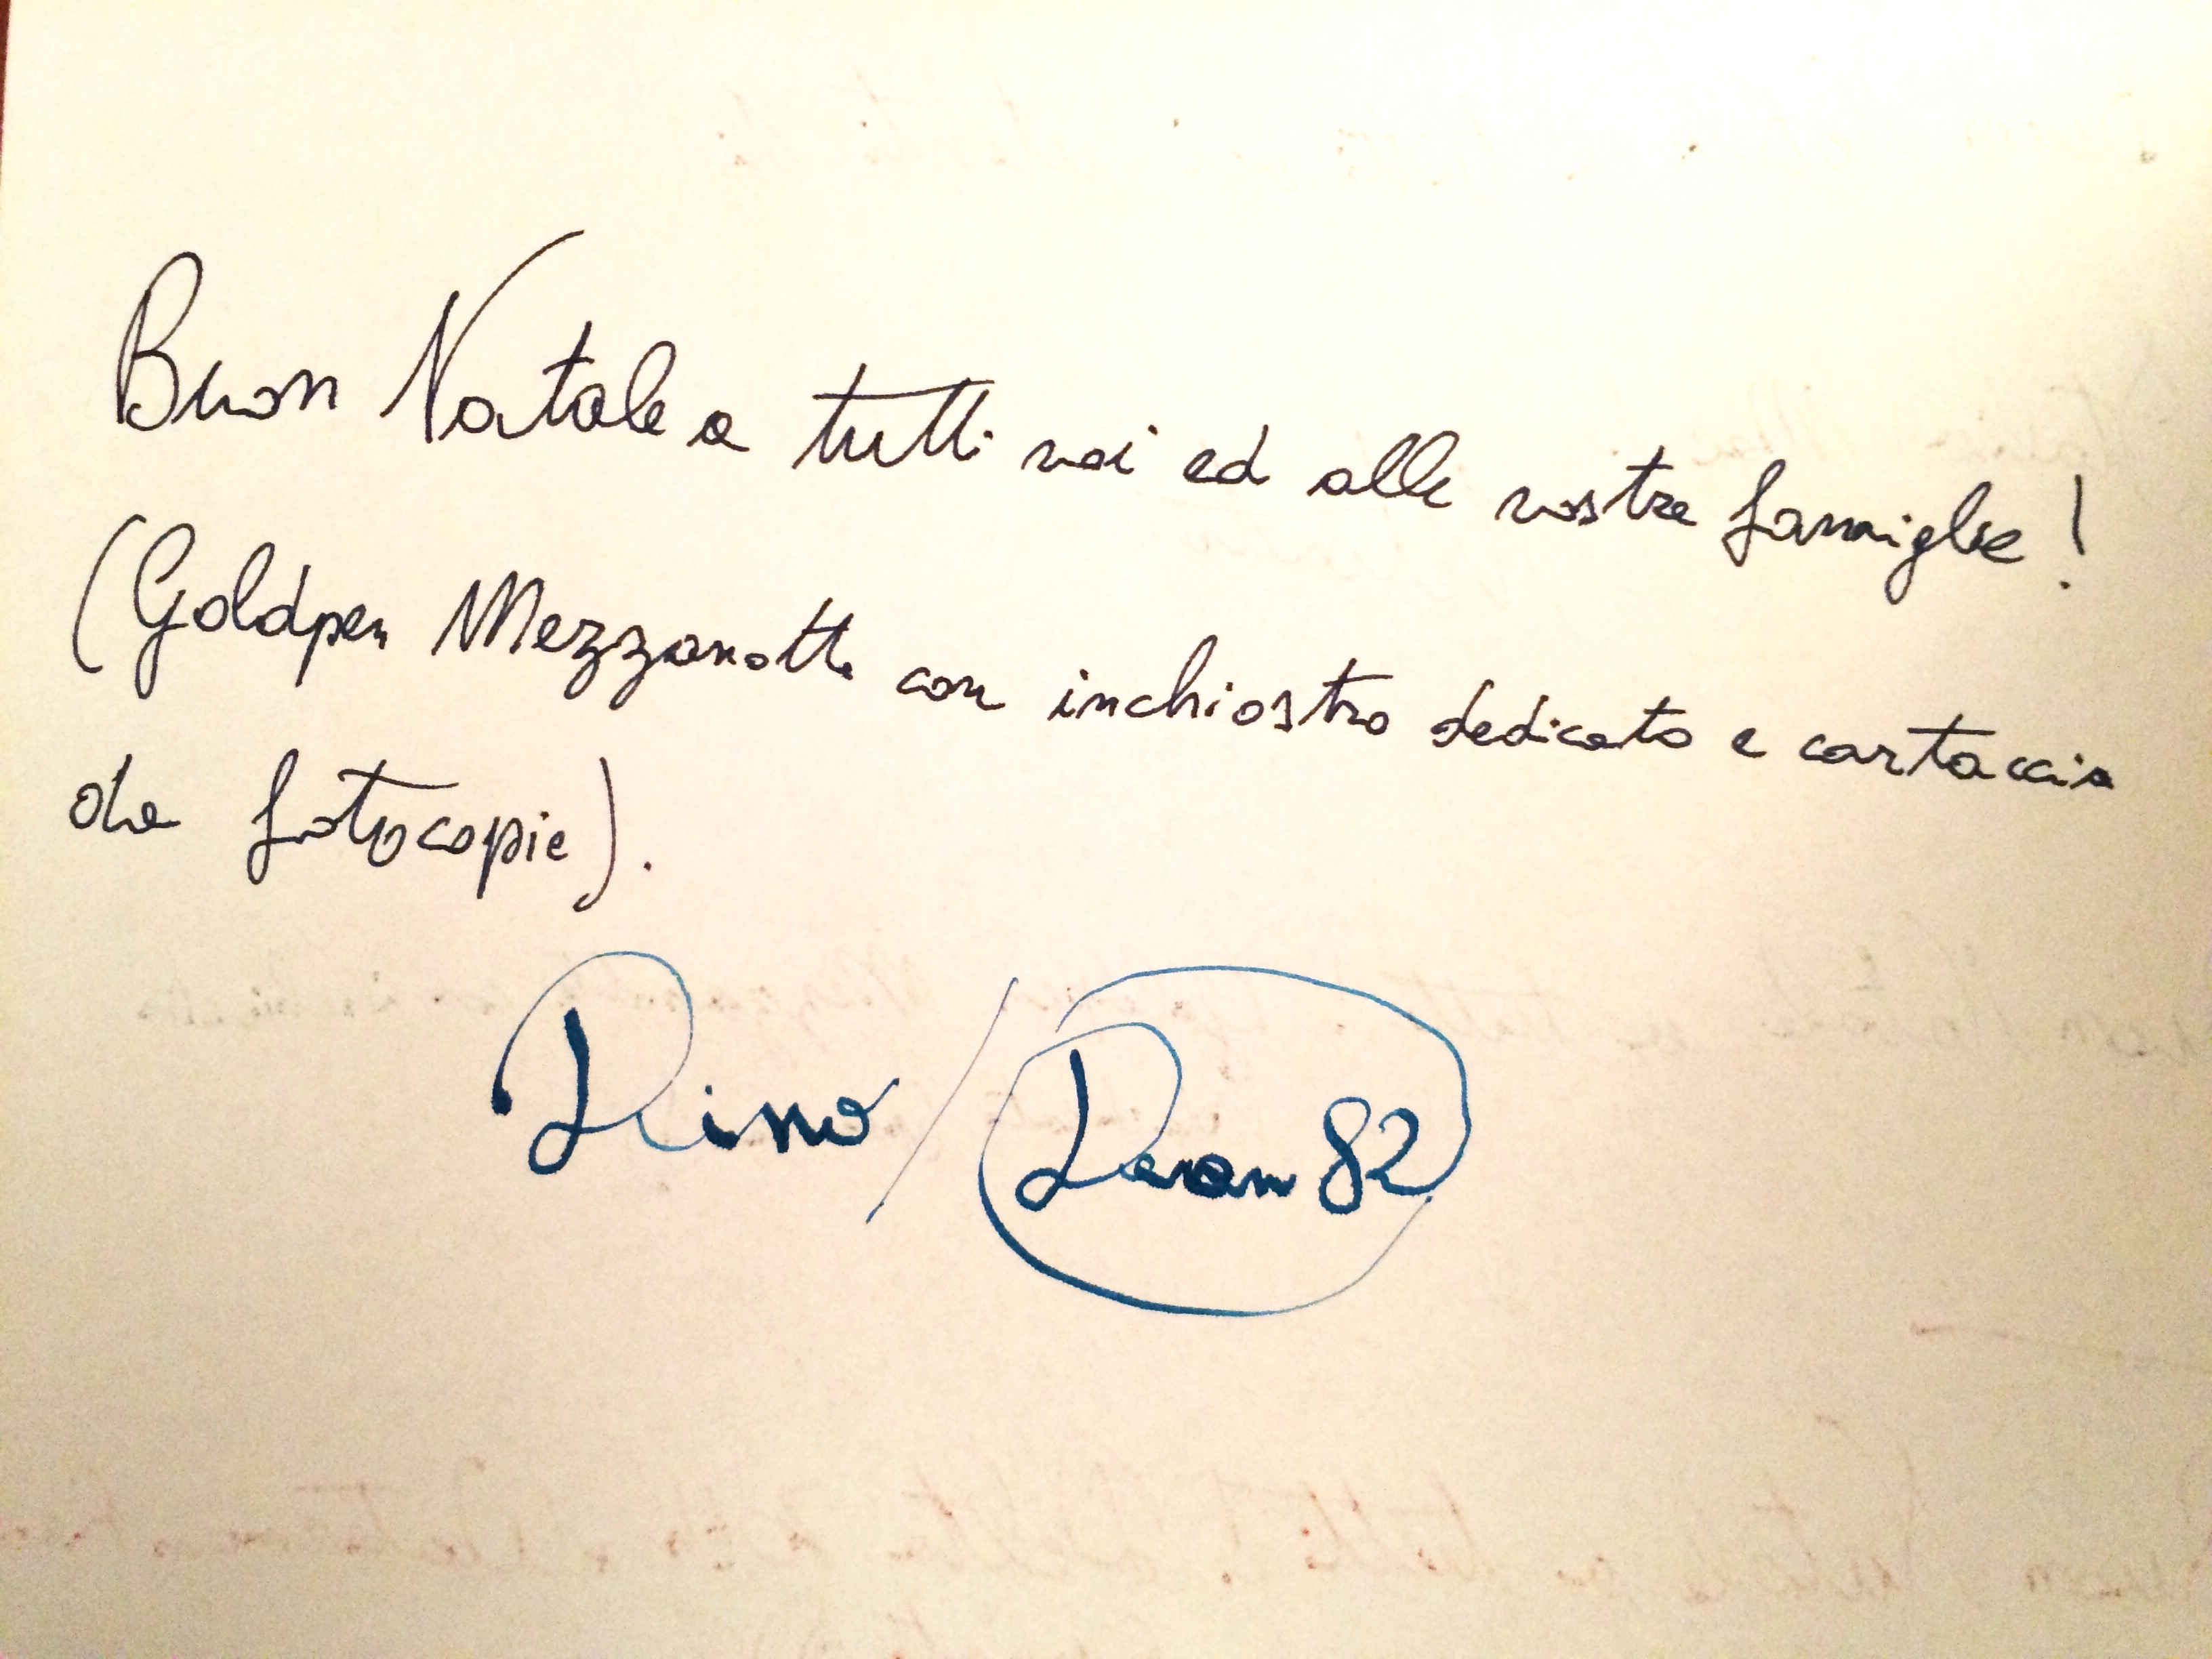 Buon Natale a tutti voi ed alle vostre famiglie!
(Goldpen Mezzanotte con inchiostro dedicato e cartaccia
da fotocopie).
Dino / 82